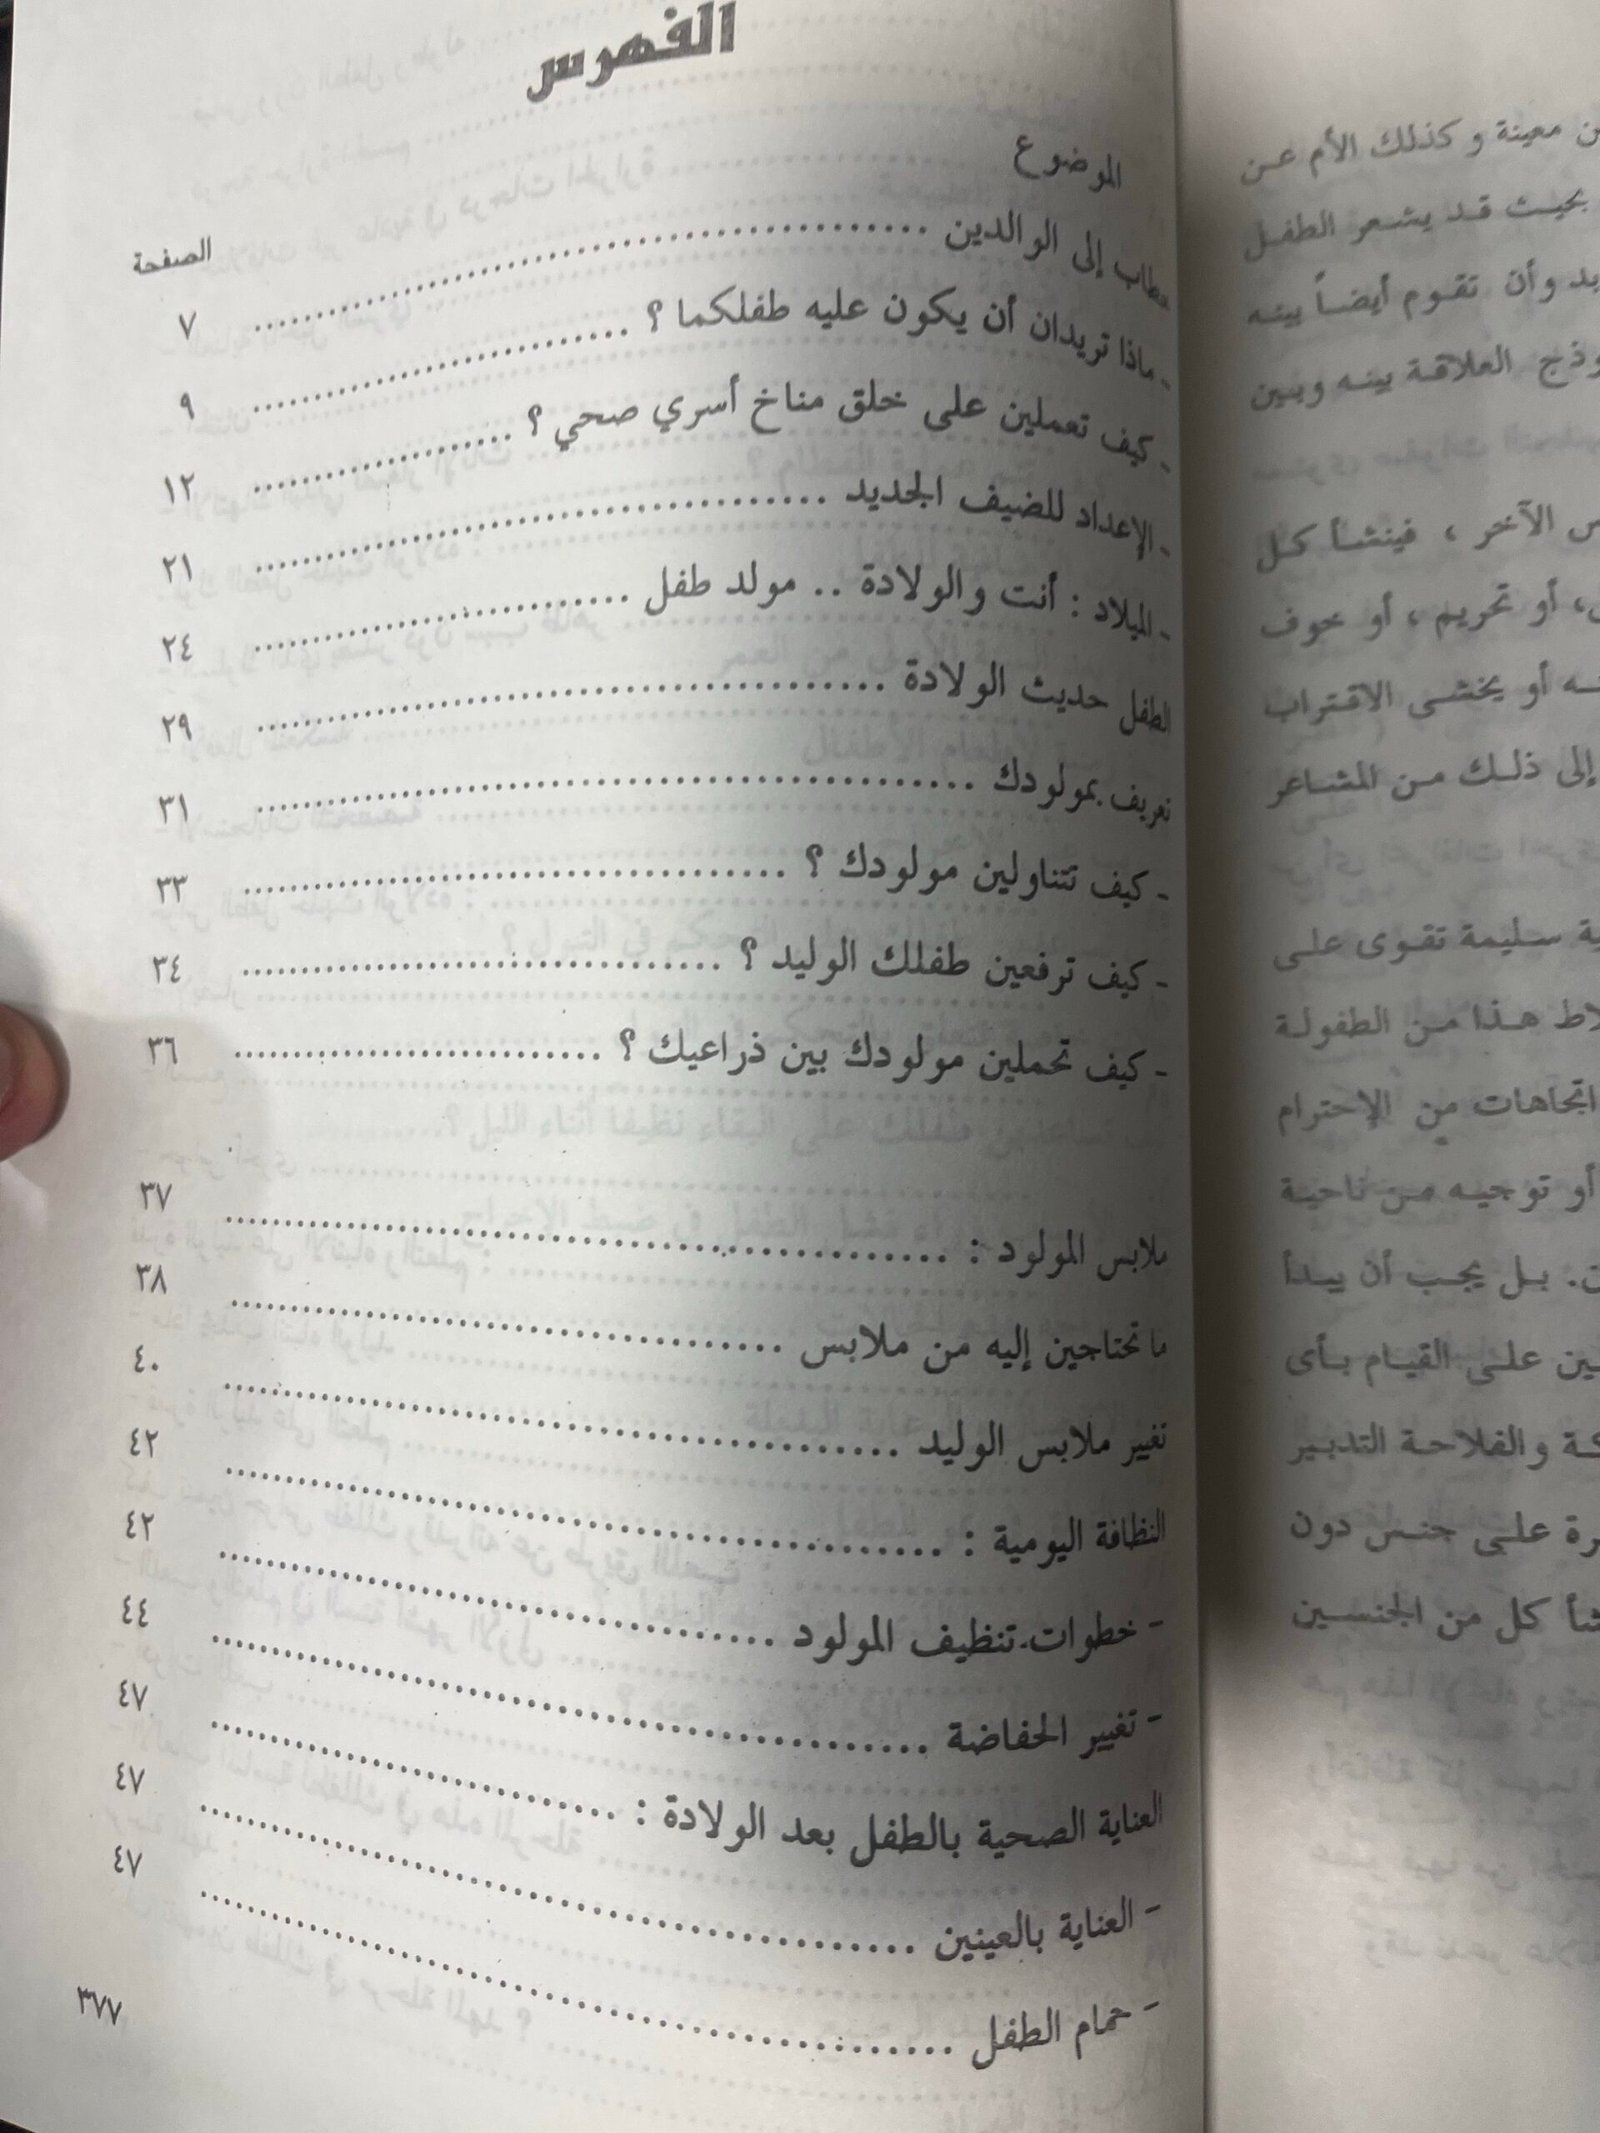 الفهرس
الموضوع
الصفحة
خطاب إلى الوالدين ........ ٧
- ماذا تريدان أن يكون عليه طفلكما ؟ ........ ٩
- كيف تعملين على خلق مناخ أسري صحي ؟ ........ ١٢
- الإعداد للضيف الجديد ........ ٢١
- الميلاد : أنت والولادة .. مولد طفل ........ ٢٤
الطفل حديث الولادة ........ ٢٩
تعريف بمولودك ........ ٣١
- كيف تتناولين مولودك ؟ ........ ٣٣
- كيف ترفعين طفلك الوليد ؟ ........ ٣٤
- كيف تحملين مولودك بين ذراعيك ؟ ........ ٣٦
ملابس المولود : ........ ٣٧
ما تحتاجين إليه من ملابس ........ ٣٨
تغيير ملابس الوليد ........ ٤٠
النظافة اليومية : ........ ٤٢
- خطوات تنظيف المولود ........ ٤٢
- تغيير الحفاضة ........ ٤٤
العناية الصحية بالطفل بعد الولادة : ........ ٤٧
- العناية بالعينين ........ ٤٧
- حمام الطفل ........ ٤٧
٣٧٧
معينة وكذلك الأم عن
بحيث قد يشعر الطفل
وأن تقوم أيضاً بينه
العلاقة بينه وبين
الآخر ، فينشأ كل
، أو تحريم ، أو خوف
أو يخشى الاقتراب
إلى ذلك من المشاعر
سليمة تقوى على
هذا من الطفولة
اتجاهات من الإحترام
أو توجيه من ناحية
. بل يجب أن يبدأ
على القيام بأى
والفلاحة التدبير
على جنس دون
كل من الجنسين